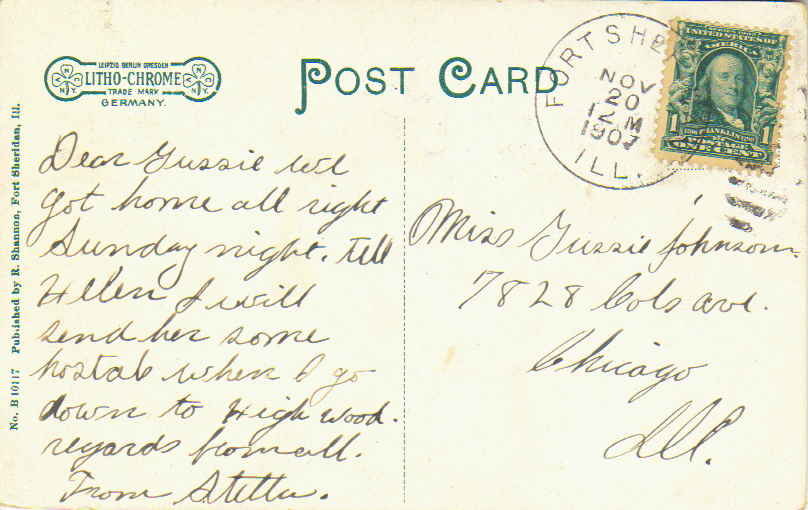 LEIPZIG BERLIN DRESDEN
LITHO-CHROME
TRADE MARK
GERMANY.
N Y N Y
N Y N Y
POST CARD
FORT SHE
NOV
20
12 M
1907
ILL.
UNITED STATES OF
AMERICA
FRANKLIN
1 POSTAGE 1
ONE CENT
No. B 10117 Published by R. Shannon, Fort Sheridan, Ill.
Dear Gussie we
got home all right
Sunday night. tell
Hellen I will
send her some
postals when I go
down to High wood.
regards from all.
From Stella.
Miss Gussie Johnson.
7828 Cols ave.
Chicago
Ill.